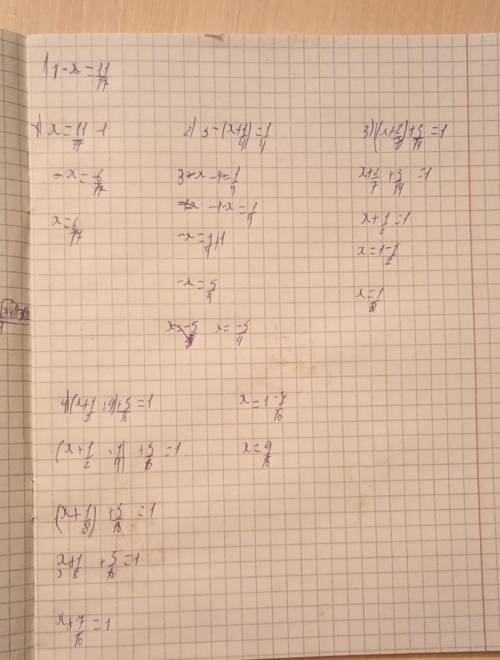 1) 1-x=11/17
1) x=11/17 -1
-x=-6/17
x=6/17
2) 3-(x+1/4)=1/4
3-x-4=1/4
-1-x=1/4
-x=1/4+1
-x=5/4
x=-5/4
3) (x+2/7)+3/14=1
x+2/7+3/14=1
x+1/2=1
x=1-1/2
x=1/2
(x+1/2 · 1/4)+5/16=1
(x+1/8)+5/16=1
x+1/8+5/16=1
x+7/16=1
x=1-7/16
x=9/16